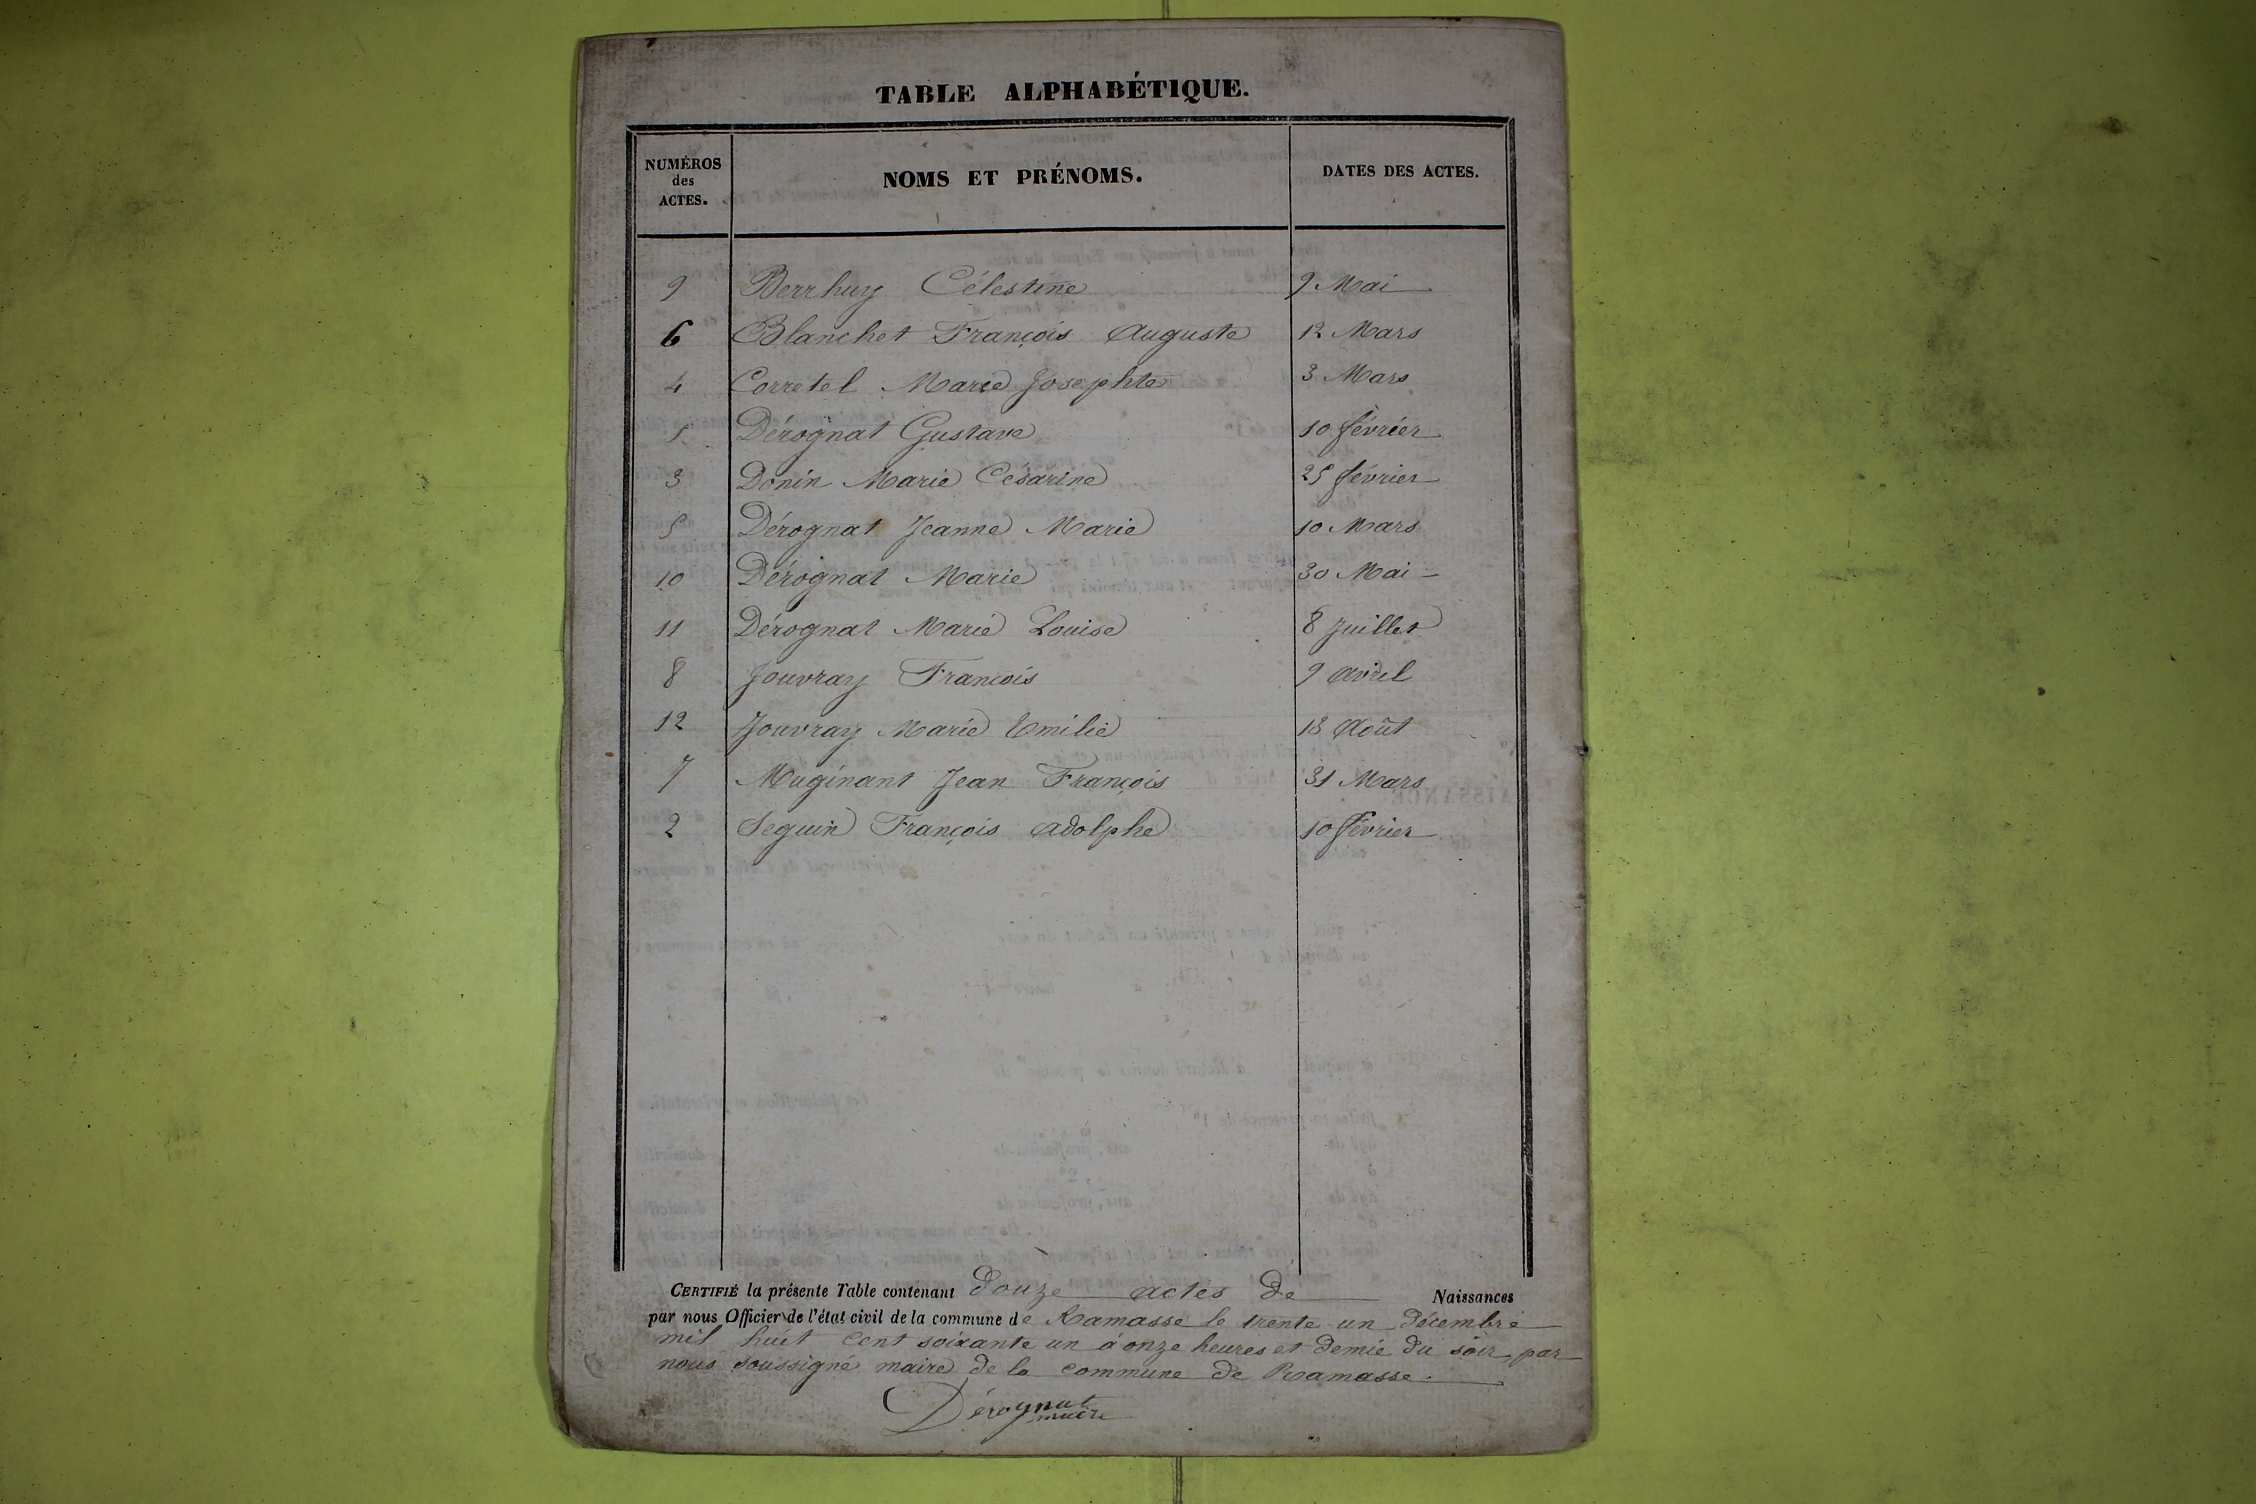 TABLE ALPHABÉTIQUE.
NUMÉROS des ACTES. NOMS ET PRÉNOMS. DATES DES ACTES.
9 Berrhuy Célestine 9 Mai
6 Blanchet François Auguste 12 Mars
4 Corretel Marie Josephte 3 Mars
1 Dérognat Gustave 10 février
3 Donin Marie Césarine 25 février
5 Dérognat Jeanne Marie 10 Mars
10 Dérognat Marie 30 Mai
11 Dérognat Marie Louise 8 Juillet
8 Jouvray François 9 avril
12 Jouvray Marie Emilie 18 Août
7 Muginant Jean François 31 Mars
2 Seguin François Adolphe 10 février
CERTIFIÉ la présente Table contenant douze actes de Naissances
par nous Officier de l'état civil de la commune de Ramasse le trente un Décembre
mil huit cent soixante un à onze heures et demie du soir, par
nous soussigné maire de la commune de Ramasse.
Dérognat
maire